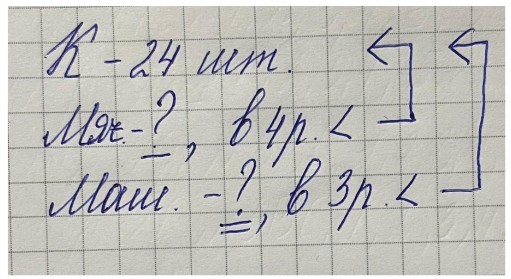 К - 24 шт.
Мяч. - ?, в 4 р. <
Маш. - ?, в 3 р. <